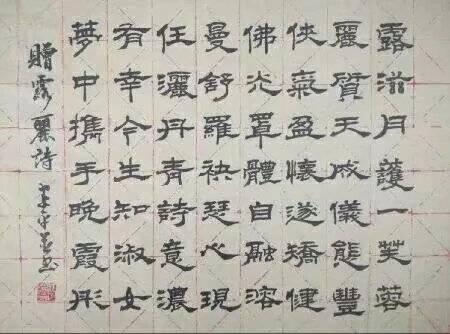 露滋月護一芙蓉
麗質天成儀態豐
俠氣盈懷遂矯健
佛光罩體自融溶
曼舒羅袂瑟心現
任灑丹青詩意濃
有幸今生知淑女
夢中攜手晚霞彤
贈露麗詩